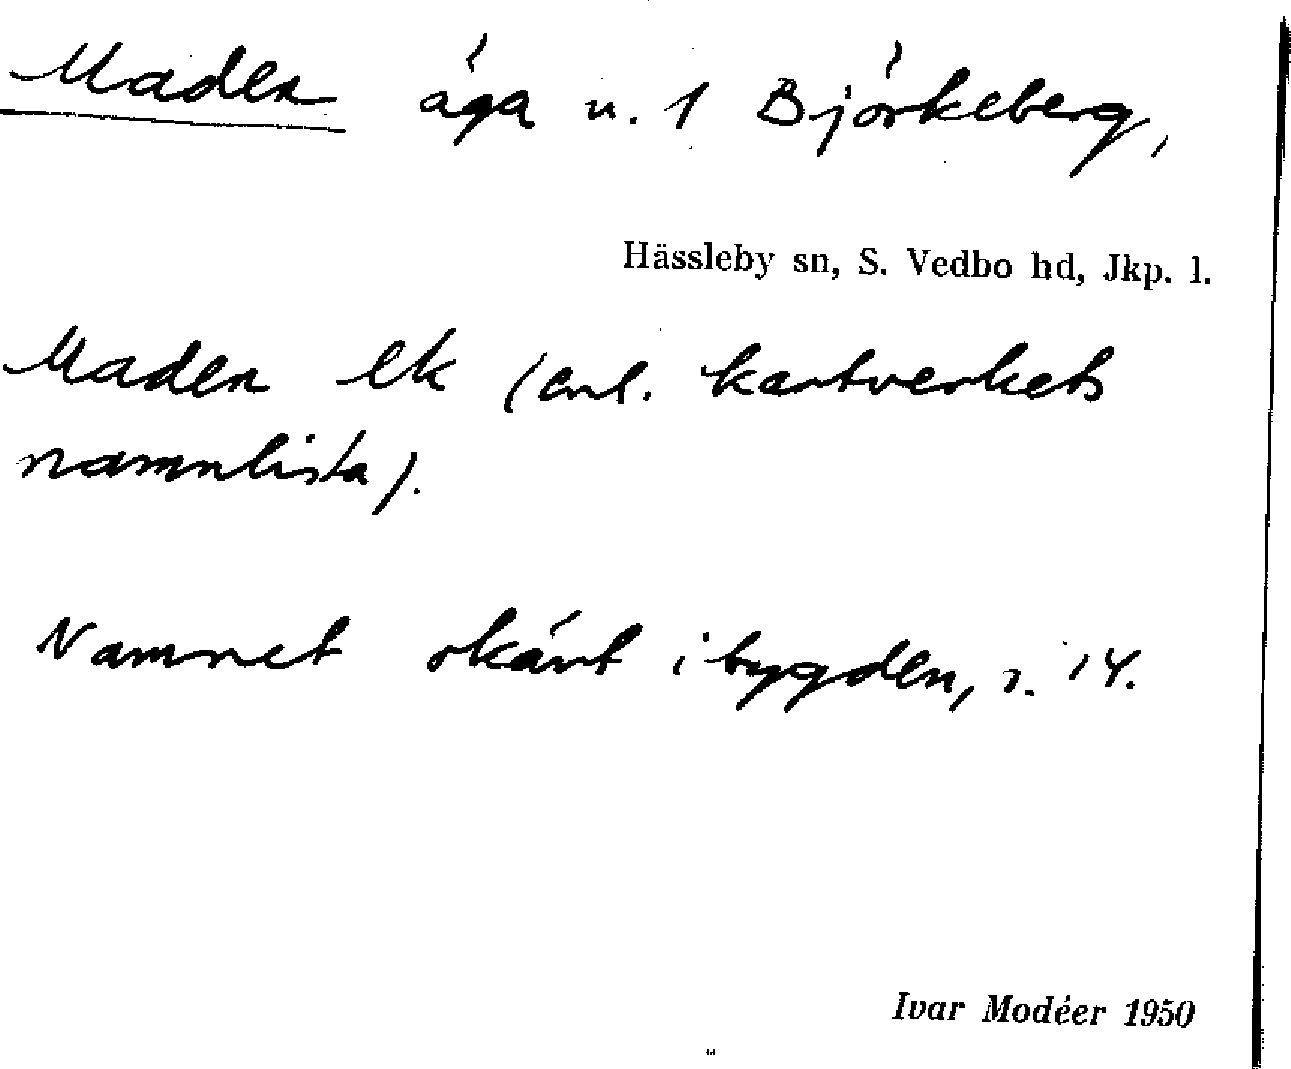 Maden äga u. 1 Björkeberg,
Hässleby sn, S. Vedbo hd, Jkp. l.
Maden ek (enl. kartverkets
namnlista).
Namnet okänt i bygden, s. 14.
Ivar Modéer 1950